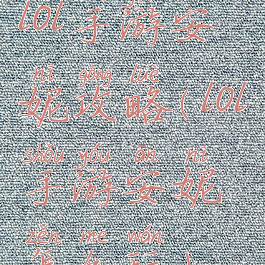 lol 手游安
nī gōng lüè
妮攻略(lol
shǒu yóu ān nī
手游安妮
zěn me wán